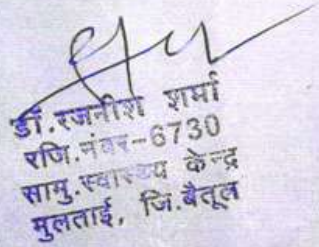 डॉ.रजनीश शर्मा
रजि.नंबर-6730
सामु.स्वास्थ्य केन्द्र
मुलताई, जि.बैतूल